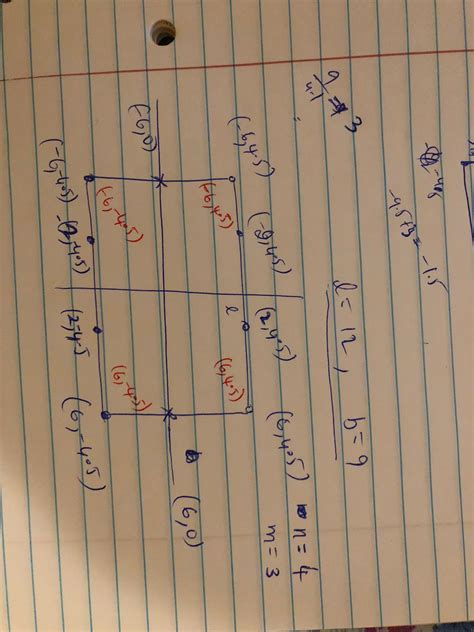 -4.5+3 = -1.5
l = 12, b = 9
n = 4
m = 3
(-6,4.5) (-2,4.5) (2,4.5) (6,4.5)
l
(-6,4.5) (6,4.5)
(-6,0) b (6,0)
(-6,-4.5) (6,-4.5)
(-6,-4.5) (2,-4.5 (6,-4.5)